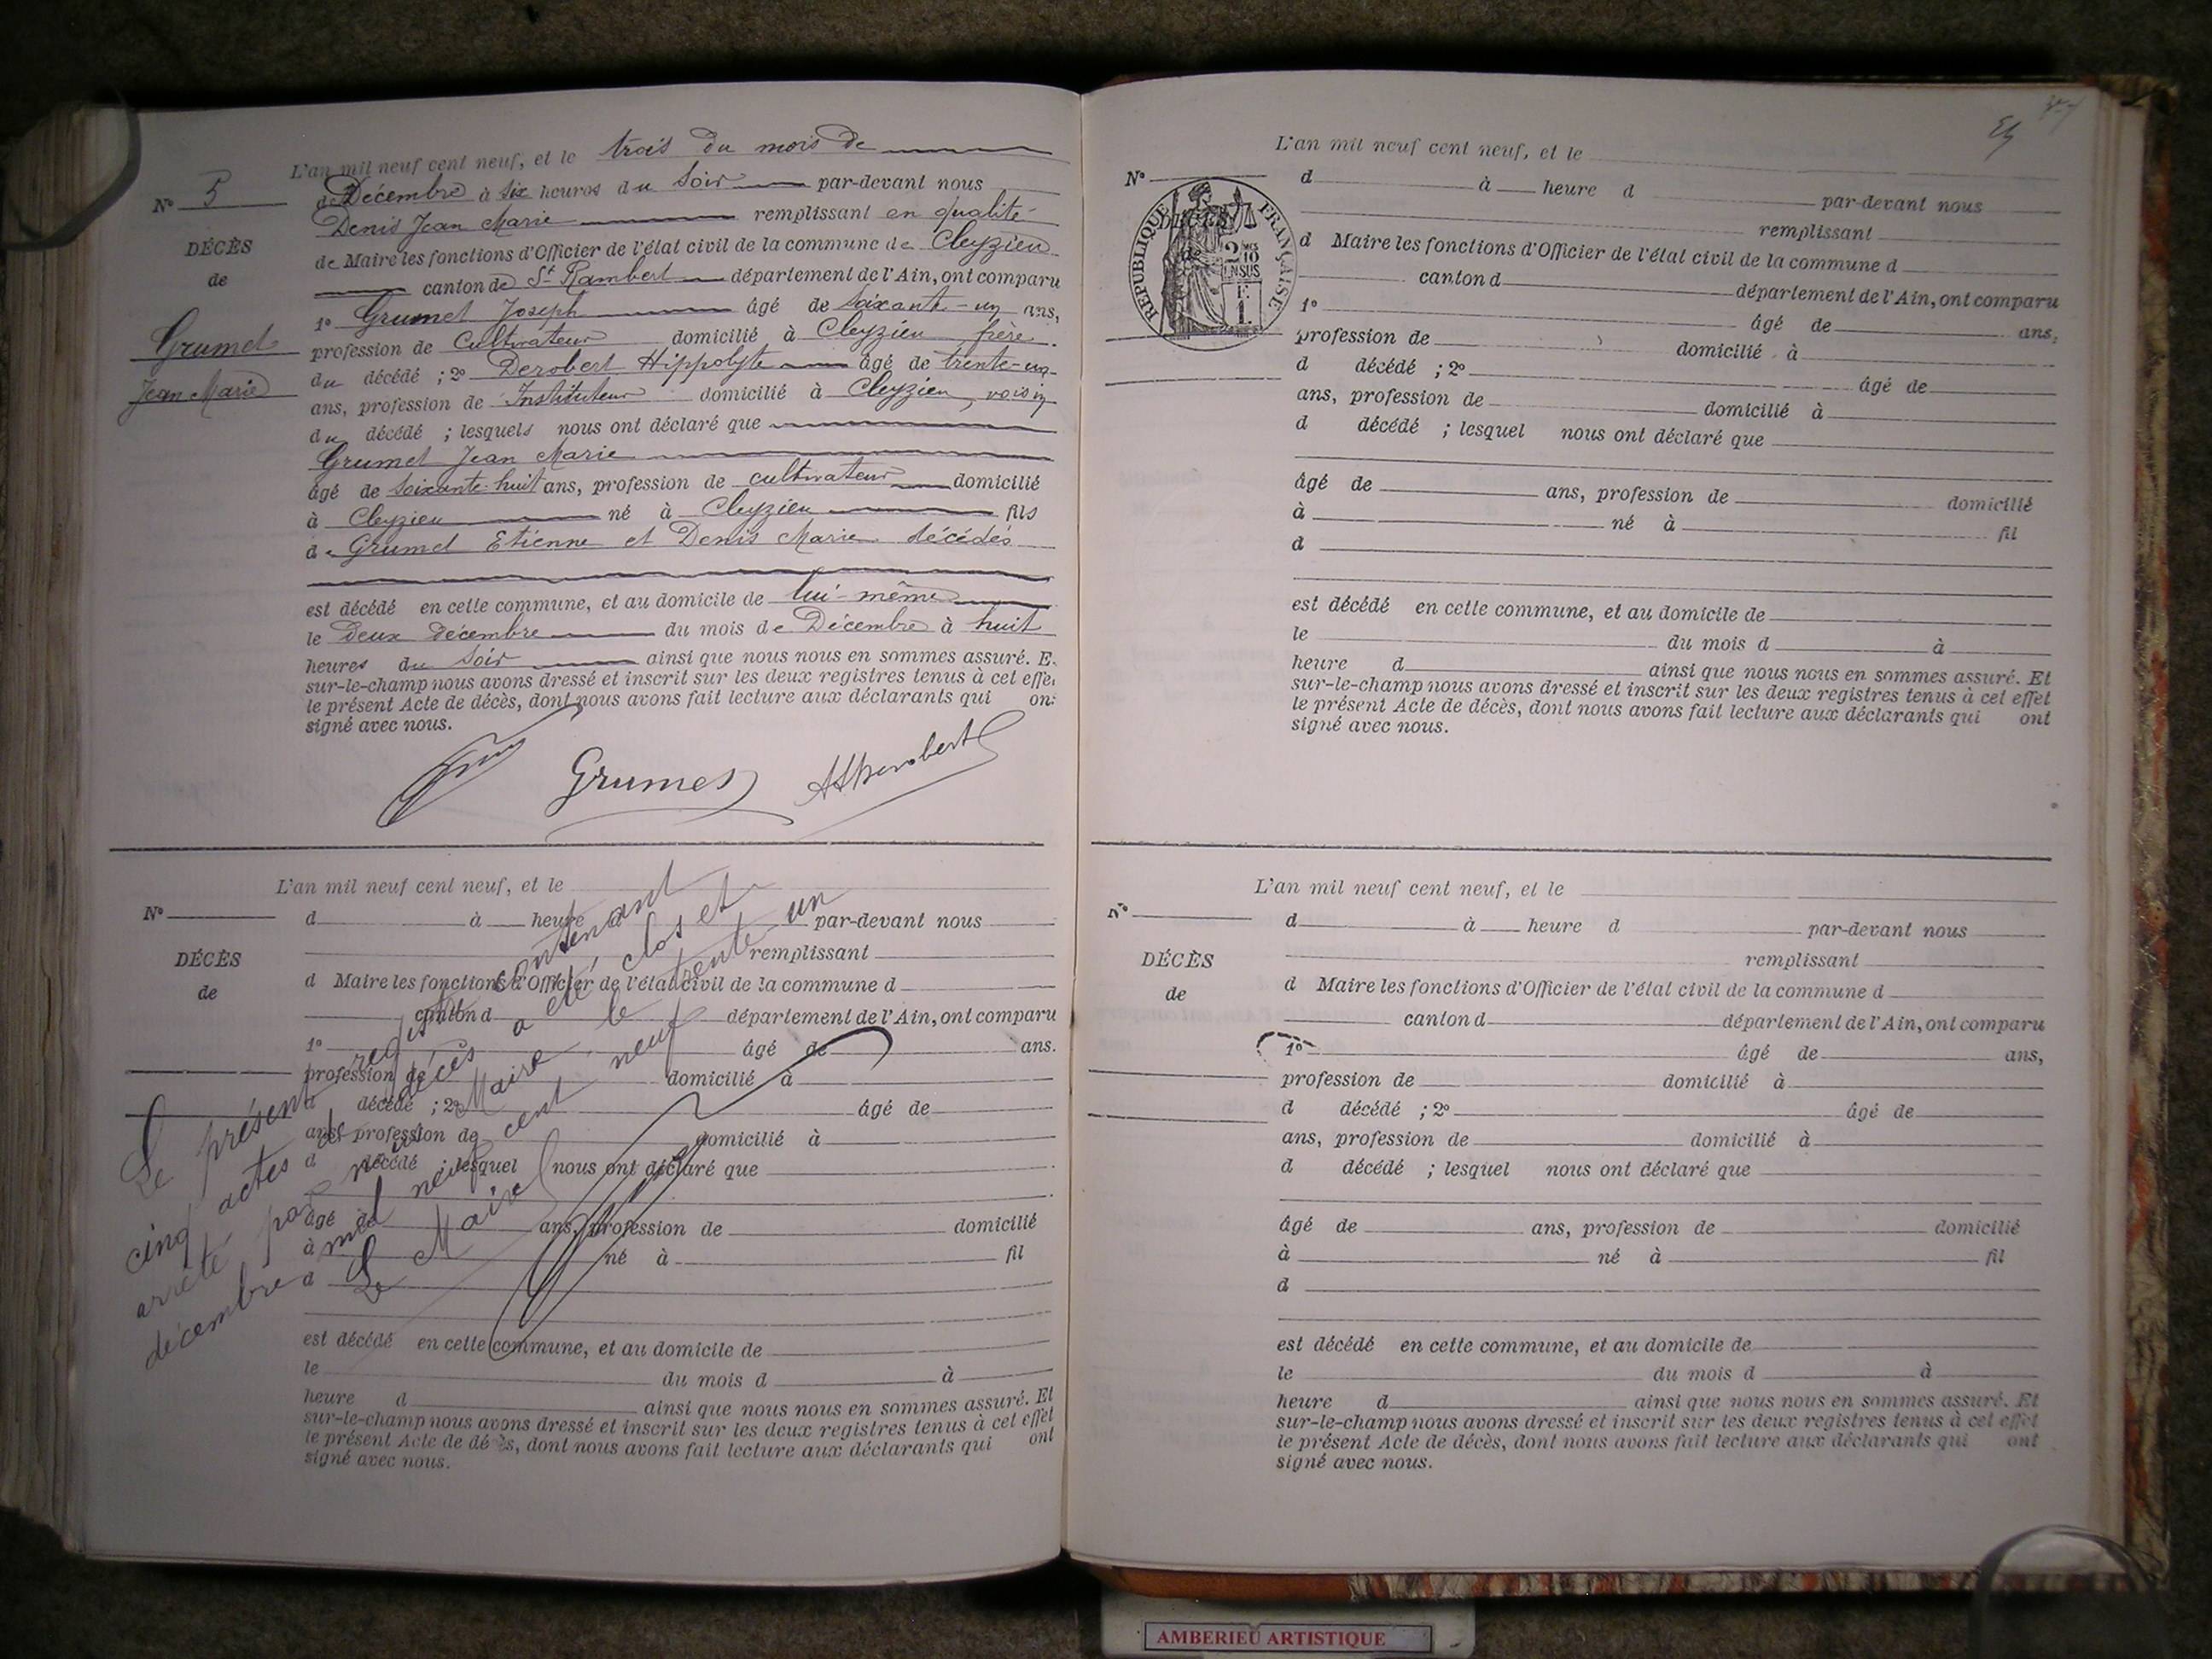 L'an mil neuf cent neuf, et le trois du mois de
de Décembre à six heures du soir par-devant nous
Nº 5
Denis Jean Marie remplissant en qualité
DÉCÈS
de Maire les fonctions d'Officier de l'état civil de la commune de Cleyzieu
de
canton de St Rambert département de l'Ain, ont comparu
1º Grumet Joseph âgé de soixante-un ans,
Grumet
profession de Cultivateur domicilié à Cleyzieu frère
du décédé ; 2º Derobert Hippolyte âgé de trente-un
Jean Marie
ans, profession de Instituteur domicilié à Cleyzieu, voisin
du décédé ; lesquels nous ont déclaré que
Grumet Jean Marie
âgé de soixante-huit ans, profession de cultivateur domicilié
à Cleyzieu né à Cleyzieu fils
de Grumet Etienne et Denis Marie décédés
est décédé en cette commune, et au domicile de lui-même
le deux décembre du mois de Décembre à huit
heures du soir ainsi que nous nous en sommes assuré. E
sur-le-champ nous avons dressé et inscrit sur les deux registres tenus à cet effe
le présent Acte de décès, dont nous avons fait lecture aux déclarants qui on
signé avec nous.
Grumet Derobert
L'an mil neuf cent neuf, et le
Nº
d à heure d par-devant nous
remplissant
DÉCÈS
de
d Maire les fonctions d'Officier de l'état civil de la commune d
canton d département de l'Ain, ont comparu
1º âgé de ans.
profession de domicilié à
d décédé ; 2º âgé de
ans, profession de domicilié à
d décédé ; lesquel nous ont déclaré que
âgé de ans, profession de domicilié
à né à fil
d
est décédé en cette commune, et au domicile de
le du mois d à
heure d ainsi que nous nous en sommes assuré. Et
sur-le-champ nous avons dressé et inscrit sur les deux registres tenus à cet effet
le présent Acte de décès, dont nous avons fait lecture aux déclarants qui ont
signé avec nous.
Le présent registre contenant
cinq actes de décès a été clos et
arrêté par nous Maire le trente-un
décembre mil neuf cent neuf
Le Maire
L'an mil neuf cent neuf, et le
Nº
d à heure d par-devant nous
RÉPUBLIQUE FRANÇAISE
DÉCÈS
de
2/10 EN SUS
F.
1.
remplissant
d Maire les fonctions d'Officier de l'état civil de la commune d
canton d département de l'Ain, ont comparu
1º âgé de ans,
profession de domicilié à
d décédé ; 2º âgé de
ans, profession de domicilié à
d décédé ; lesquel nous ont déclaré que
âgé de ans, profession de domicilié
à né à fil
d
est décédé en cette commune, et au domicile de
le du mois d à
heure d ainsi que nous nous en sommes assuré. Et
sur-le-champ nous avons dressé et inscrit sur les deux registres tenus à cet effet
le présent Acte de décès, dont nous avons fait lecture aux déclarants qui ont
signé avec nous.
L'an mil neuf cent neuf, et le
Nº
d à heure d par-devant nous
remplissant
DÉCÈS
de
d Maire les fonctions d'Officier de l'état civil de la commune d
canton d département de l'Ain, ont comparu
1º âgé de ans,
profession de domicilié à
d décédé ; 2º âgé de
ans, profession de domicilié à
d décédé ; lesquel nous ont déclaré que
âgé de ans, profession de domicilié
à né à fil
d
est décédé en cette commune, et au domicile de
le du mois d à
heure d ainsi que nous nous en sommes assuré. Et
sur-le-champ nous avons dressé et inscrit sur les deux registres tenus à cet effet
le présent Acte de décès, dont nous avons fait lecture aux déclarants qui ont
signé avec nous.
AMBERIEU ARTISTIQUE